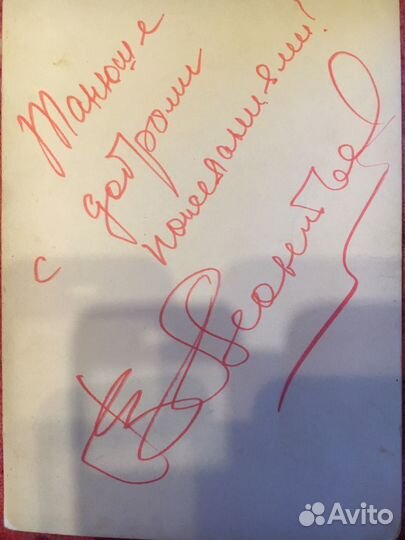 Танюше
с добрыми
пожеланиями!
Avito